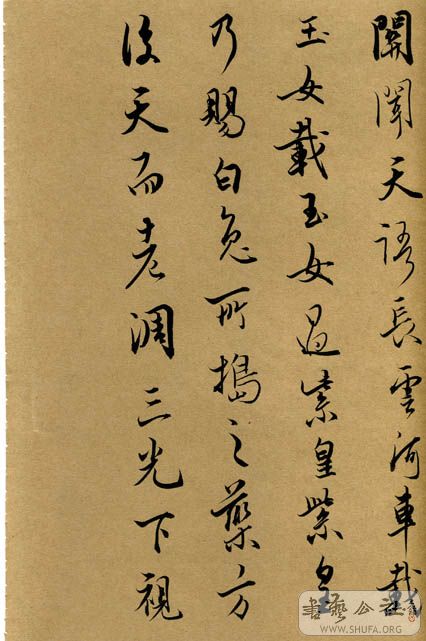 關聞天語長雲河車載
玉女載玉女過紫皇紫皇
乃賜白兔所搗之藥方
後天而老凋三光下視
書藝公社
WWW.SHUFA.ORG